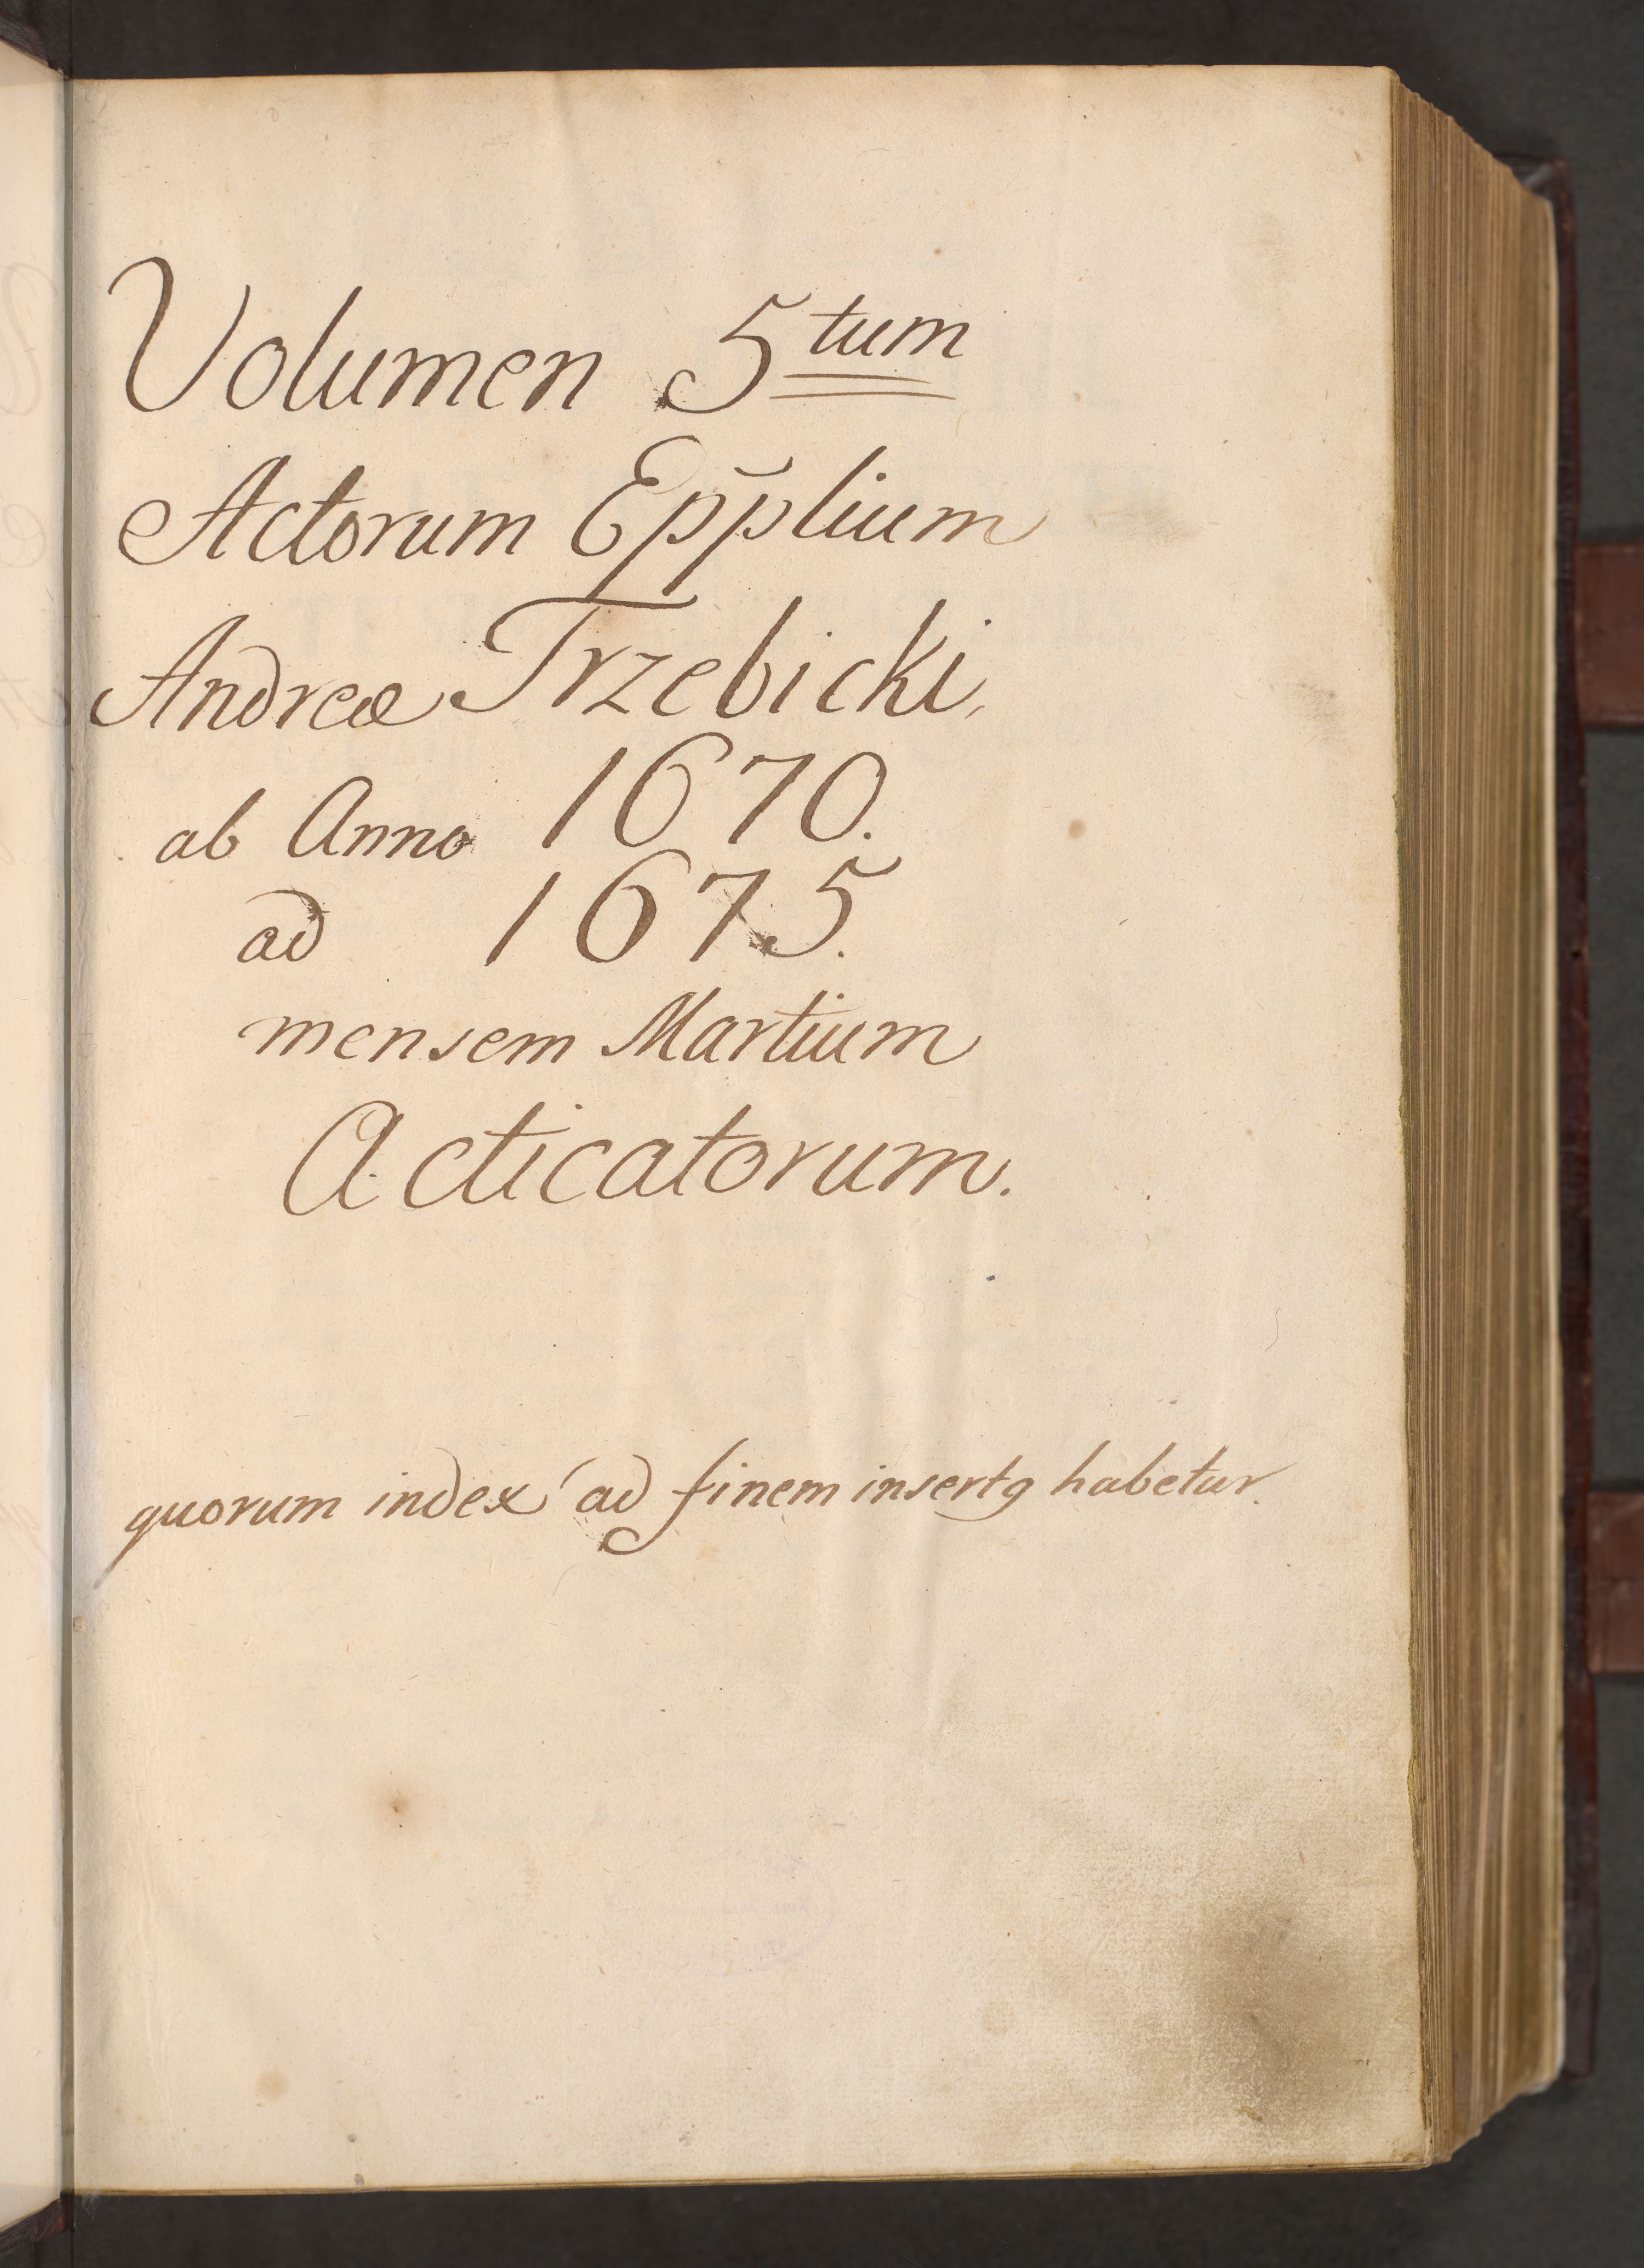 Volumen 5tum
Actorum Epp̃lium
Andreæ Trzebicki,
ab Anno 1670.
ad 1675.
mensem Martium
Acticatorum.
quorum index ad finem insertꝯ habetur.